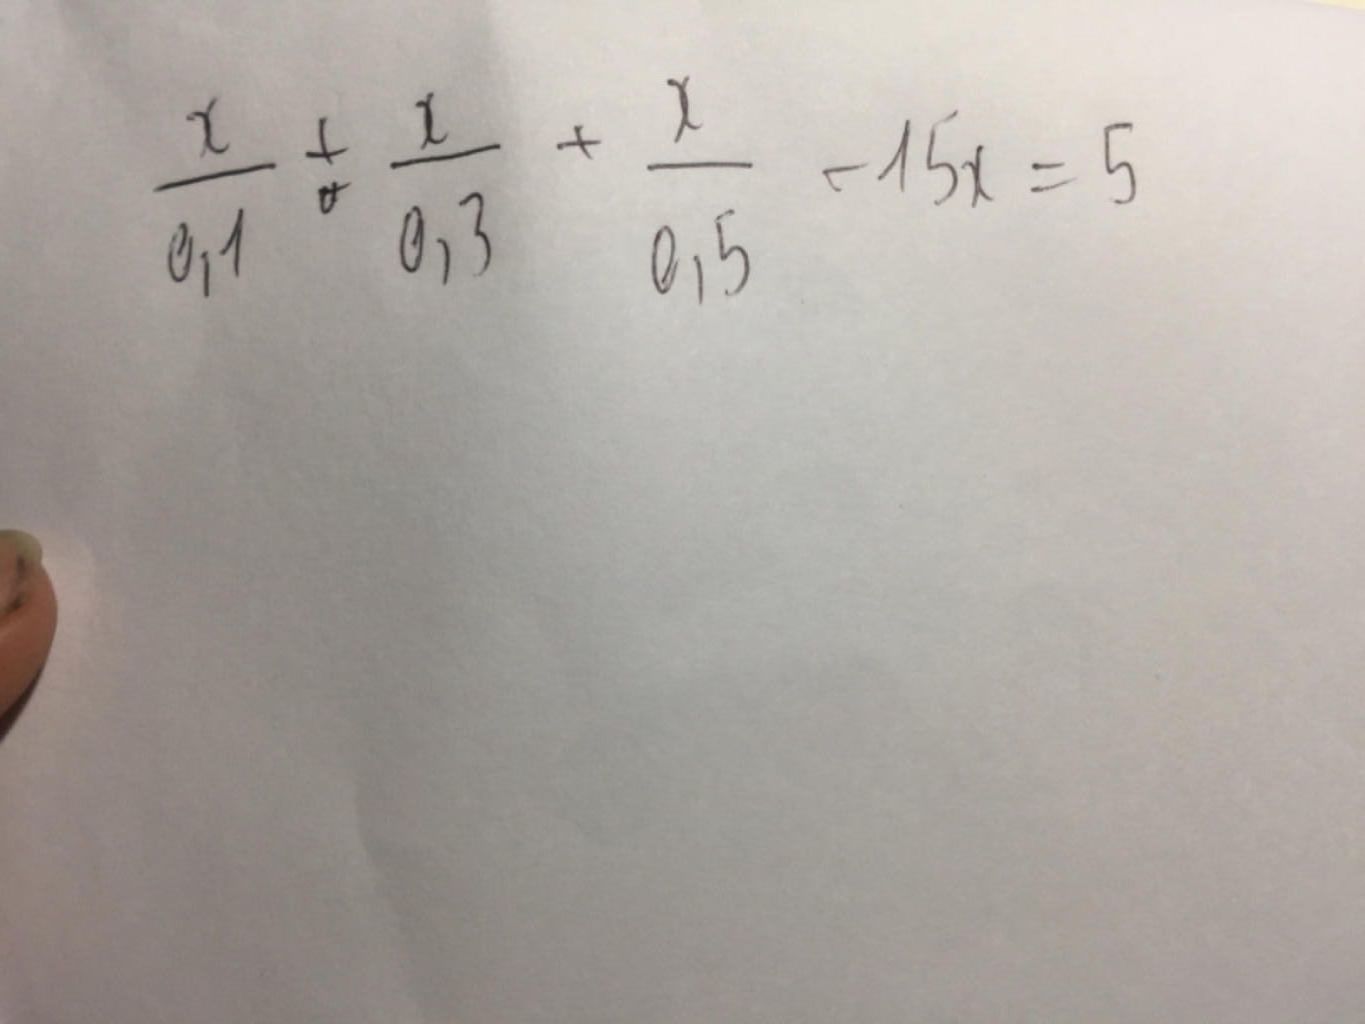 x/0,1 + x/0,3 + x/0,5 - 15x = 5